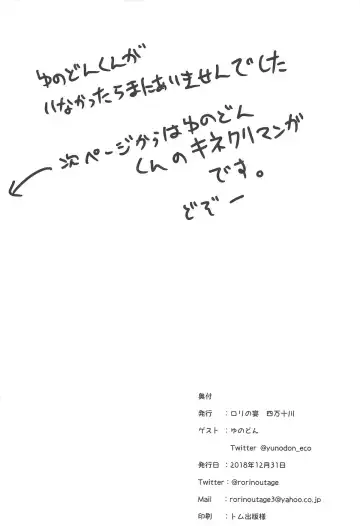 ゆのどんくんが
いなかったらまにあいませんでした
次ページからはゆのどん
くんのキネクリマンガ
です。
どぞー
奥付
発行 ：ロリの宴 四万十川
ゲスト ：ゆのどん
Twitter @yunodon_eco
発行日 ：2018年12月31日
Twitter：@rorinoutage
Mail ：rorinoutage3@yahoo.co.jp
印刷 ：トム出版様